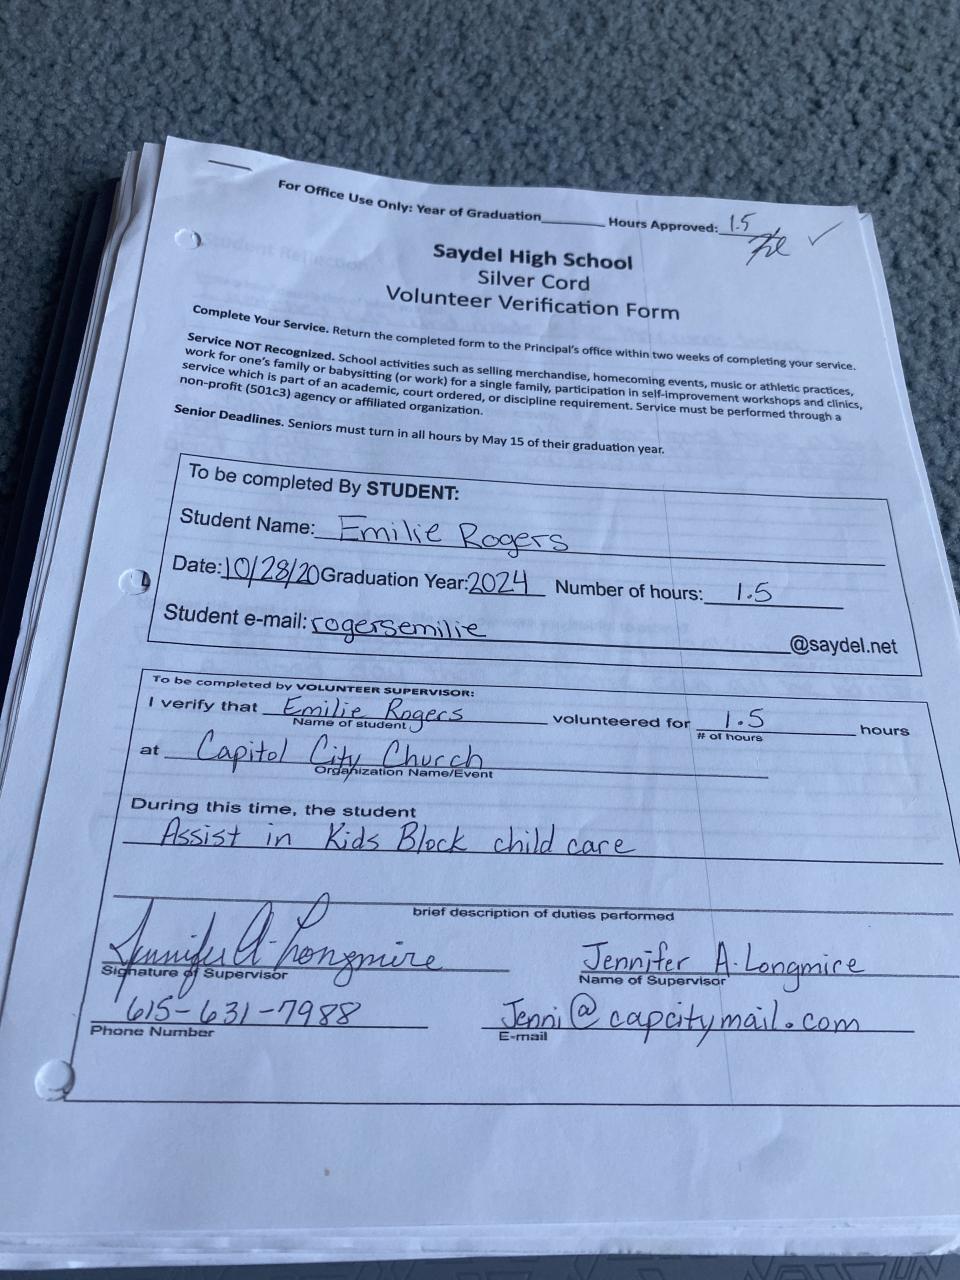 For Office Use Only: Year of Graduation________ Hours Approved: 1.5
Saydel High School
Silver Cord
Volunteer Verification Form
Complete Your Service. Return the completed form to the Principal's office within two weeks of completing your service.
Service NOT Recognized. School activities such as selling merchandise, homecoming events, music or athletic practices,
work for one's family or babysitting (or work) for a single family, participation in self-improvement workshops and clinics,
service which is part of an academic, court ordered, or discipline requirement. Service must be performed through a
non-profit (501c3) agency or affiliated organization.
Senior Deadlines. Seniors must turn in all hours by May 15 of their graduation year.
To be completed By STUDENT:
Student Name: Emilie Rogers
Date: 10/28/20 Graduation Year: 2024 Number of hours: 1.5
Student e-mail: rogersemilie @saydel.net
To be completed by VOLUNTEER SUPERVISOR:
I verify that Emilie Rogers volunteered for 1.5 hours
Name of student # of hours
at Capitol City Church
Organization Name/Event
During this time, the student
Assist in Kids Block child care
brief description of duties performed
Jennifer A. Longmire Jennifer A. Longmire
Signature of Supervisor Name of Supervisor
615-631-7988 Jenni@capcitymail.com
Phone Number E-mail